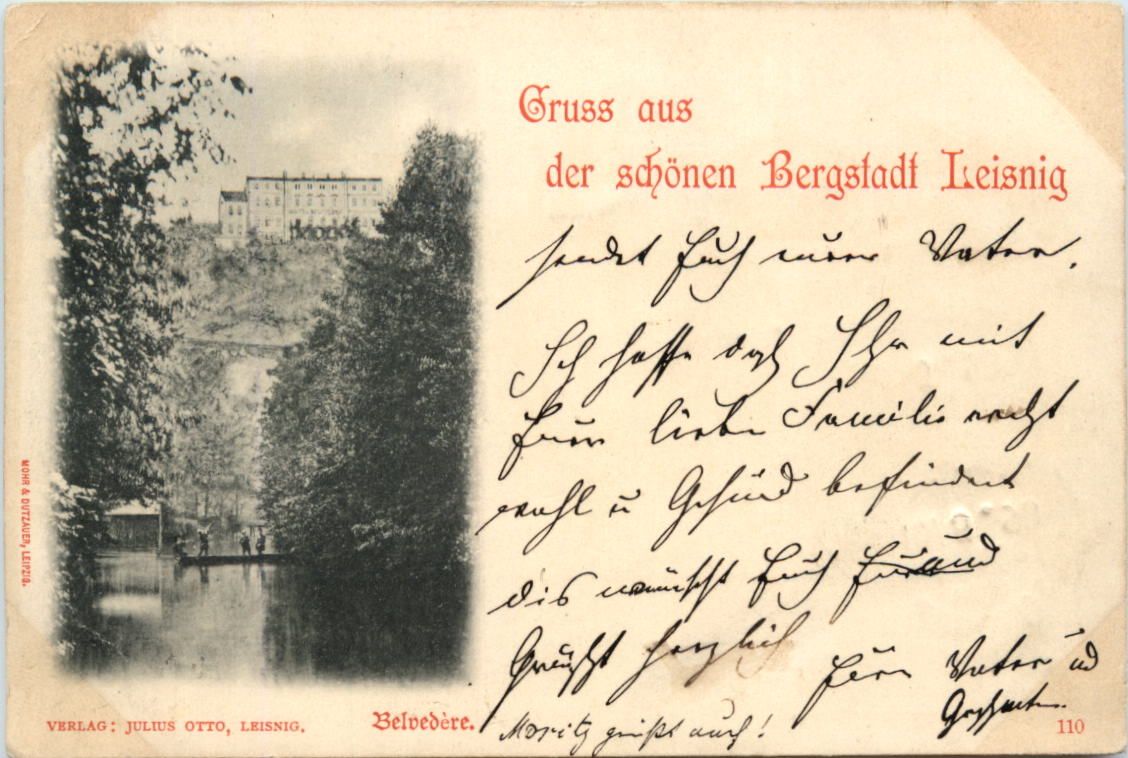 Gruss aus
der schönen Bergstadt Leisnig
sendet Euch eurer Vater.
Ich hoffe daß Ihr mit
Eurer lieben Familie recht
wohl u Gesund befindent
dis wünscht Euch und
Grüßt herzlich
Euer Vater und
Moritz grüßt auch!
MOHR & DUTZAUER, LEIPZIG.
VERLAG: JULIUS OTTO, LEISNIG.
Belvedère.
110